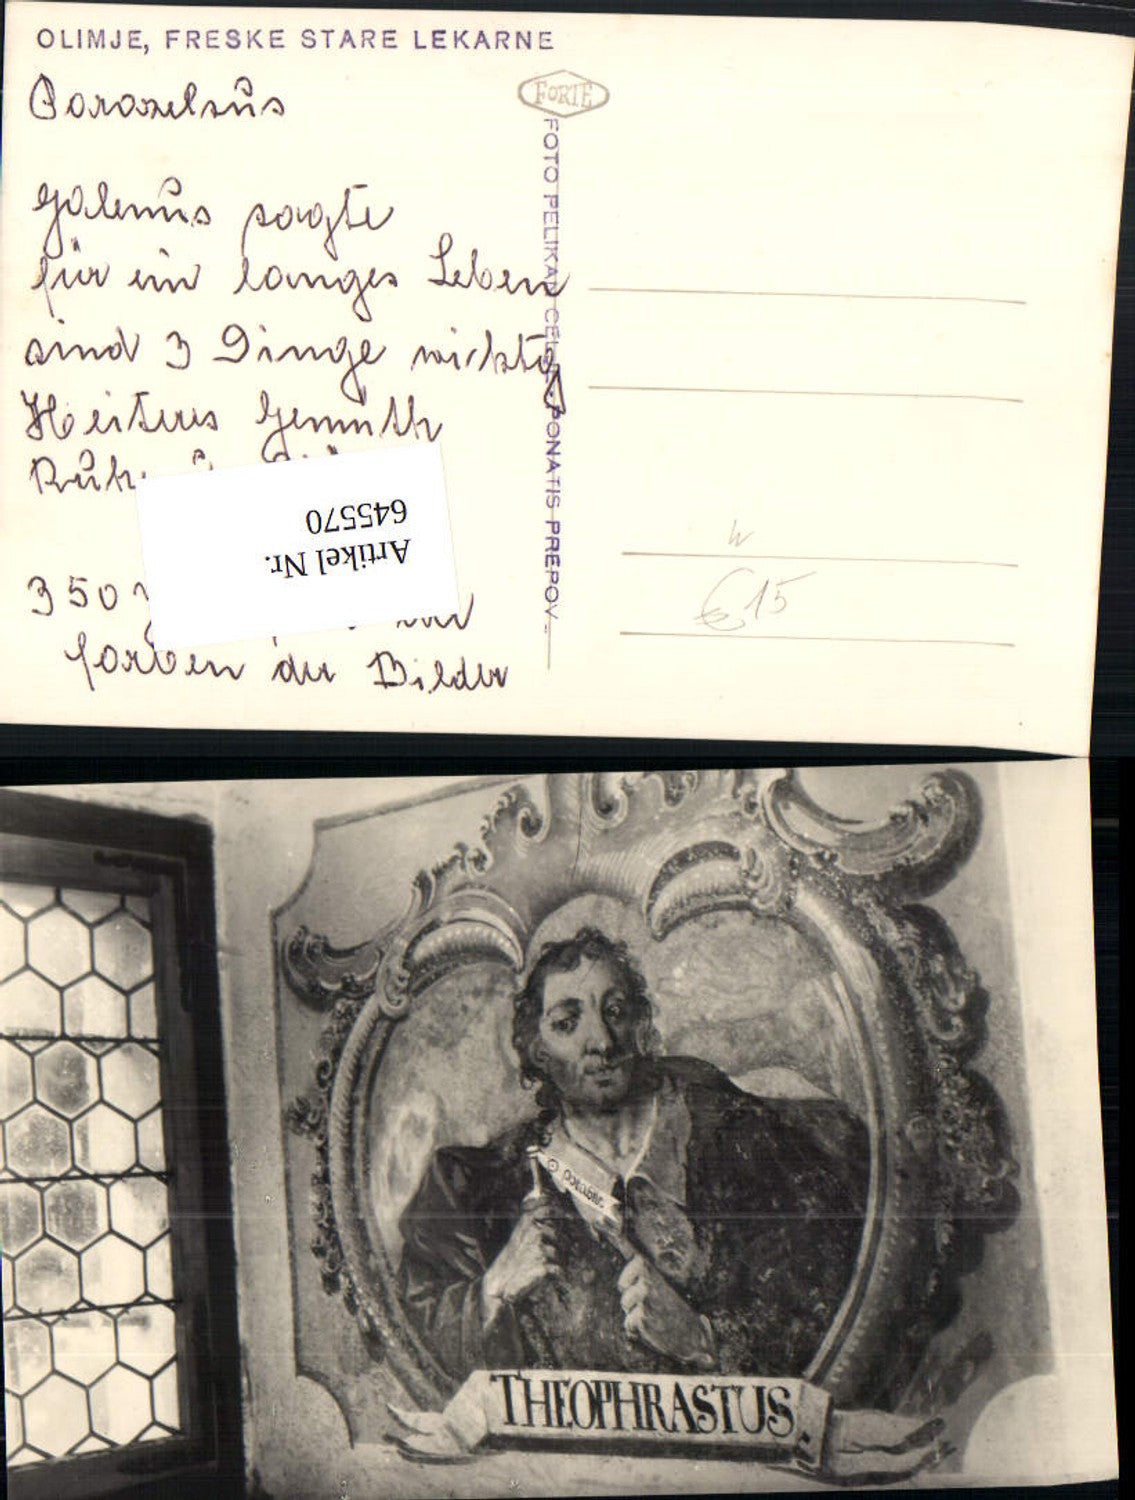 OLIMJE, FRESKE STARE LEKARNE
Parazelsus
Galenus sagte
für ein langes Leben
sind 3 Dinge wichtig
Heiteres Gemüth
350
farben der Bilder
FORTE
FOTO PELIKAN CELJE - PONATIS PREPOV.
Artikel Nr.
645570
€15
THEOPHRASTUS.